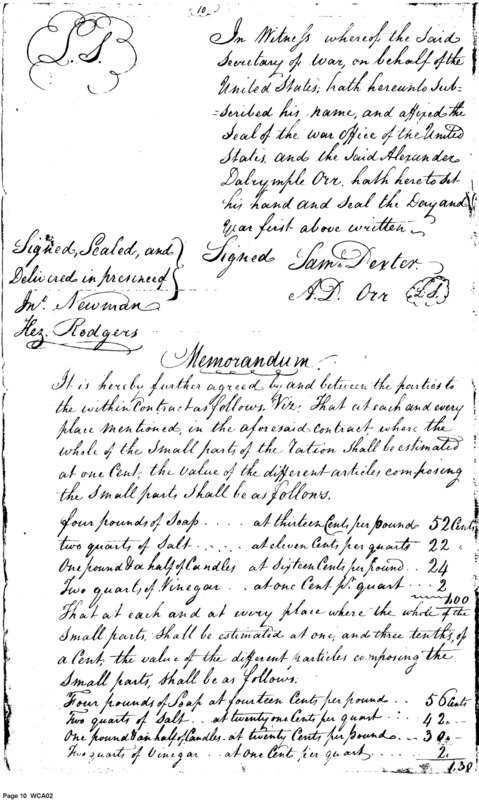 10
L. S.
In Witness whereof the Said
Secretary of War, on behalf of the
United States, hath hereunto Sub=
=scribed his name, and affixed the
Seal of the War Office of the United
States, and the Said Alexander
Dalrymple Orr. hath hereto Set
his hand and Seal the Day and
Year first above written
Signed, Sealed, and
Delivered in presence of
Jno. Newman
Hez. Rodgers
Signed Sam. Dexter.
A. D. Orr L.S.
Memorandum.
It is hereby further agreed by and between the parties to
the within Contract as follows. Viz: That at each and every
place mentioned, in the aforesaid contract where the
whole of the Small parts of the Ration Shall be estimated
at one Cent, the Value of the different articles composing
the Small parts Shall be as follows.
four pounds of Soap .... at thirteen Cents per pound 52 Cents
two quarts of Salt ...... at eleven Cents per quarts 22 "
One pound & an half of Candles at Sixteen Cents per pound .. 24
Two quarts of Vinegar .. at one Cent pr. quart ... 2
1.00
That at each and at every place where the whole of the
Small parts, Shall be estimated at one, and three tenths, of
a Cent, the value of the different articles composing the
Small parts, shall be as follows.
Four pounds of Soap at fourteen Cents per pound ... 56 Cents
Two quarts of Salt .. at twenty one Cents per quart ... 42 "
One pound & an half of Candles at twenty Cents per pound .. 30 "
Two quarts of Vinegar .. at one Cent per quart ..... 2.
1.30
Page 10 WCA02